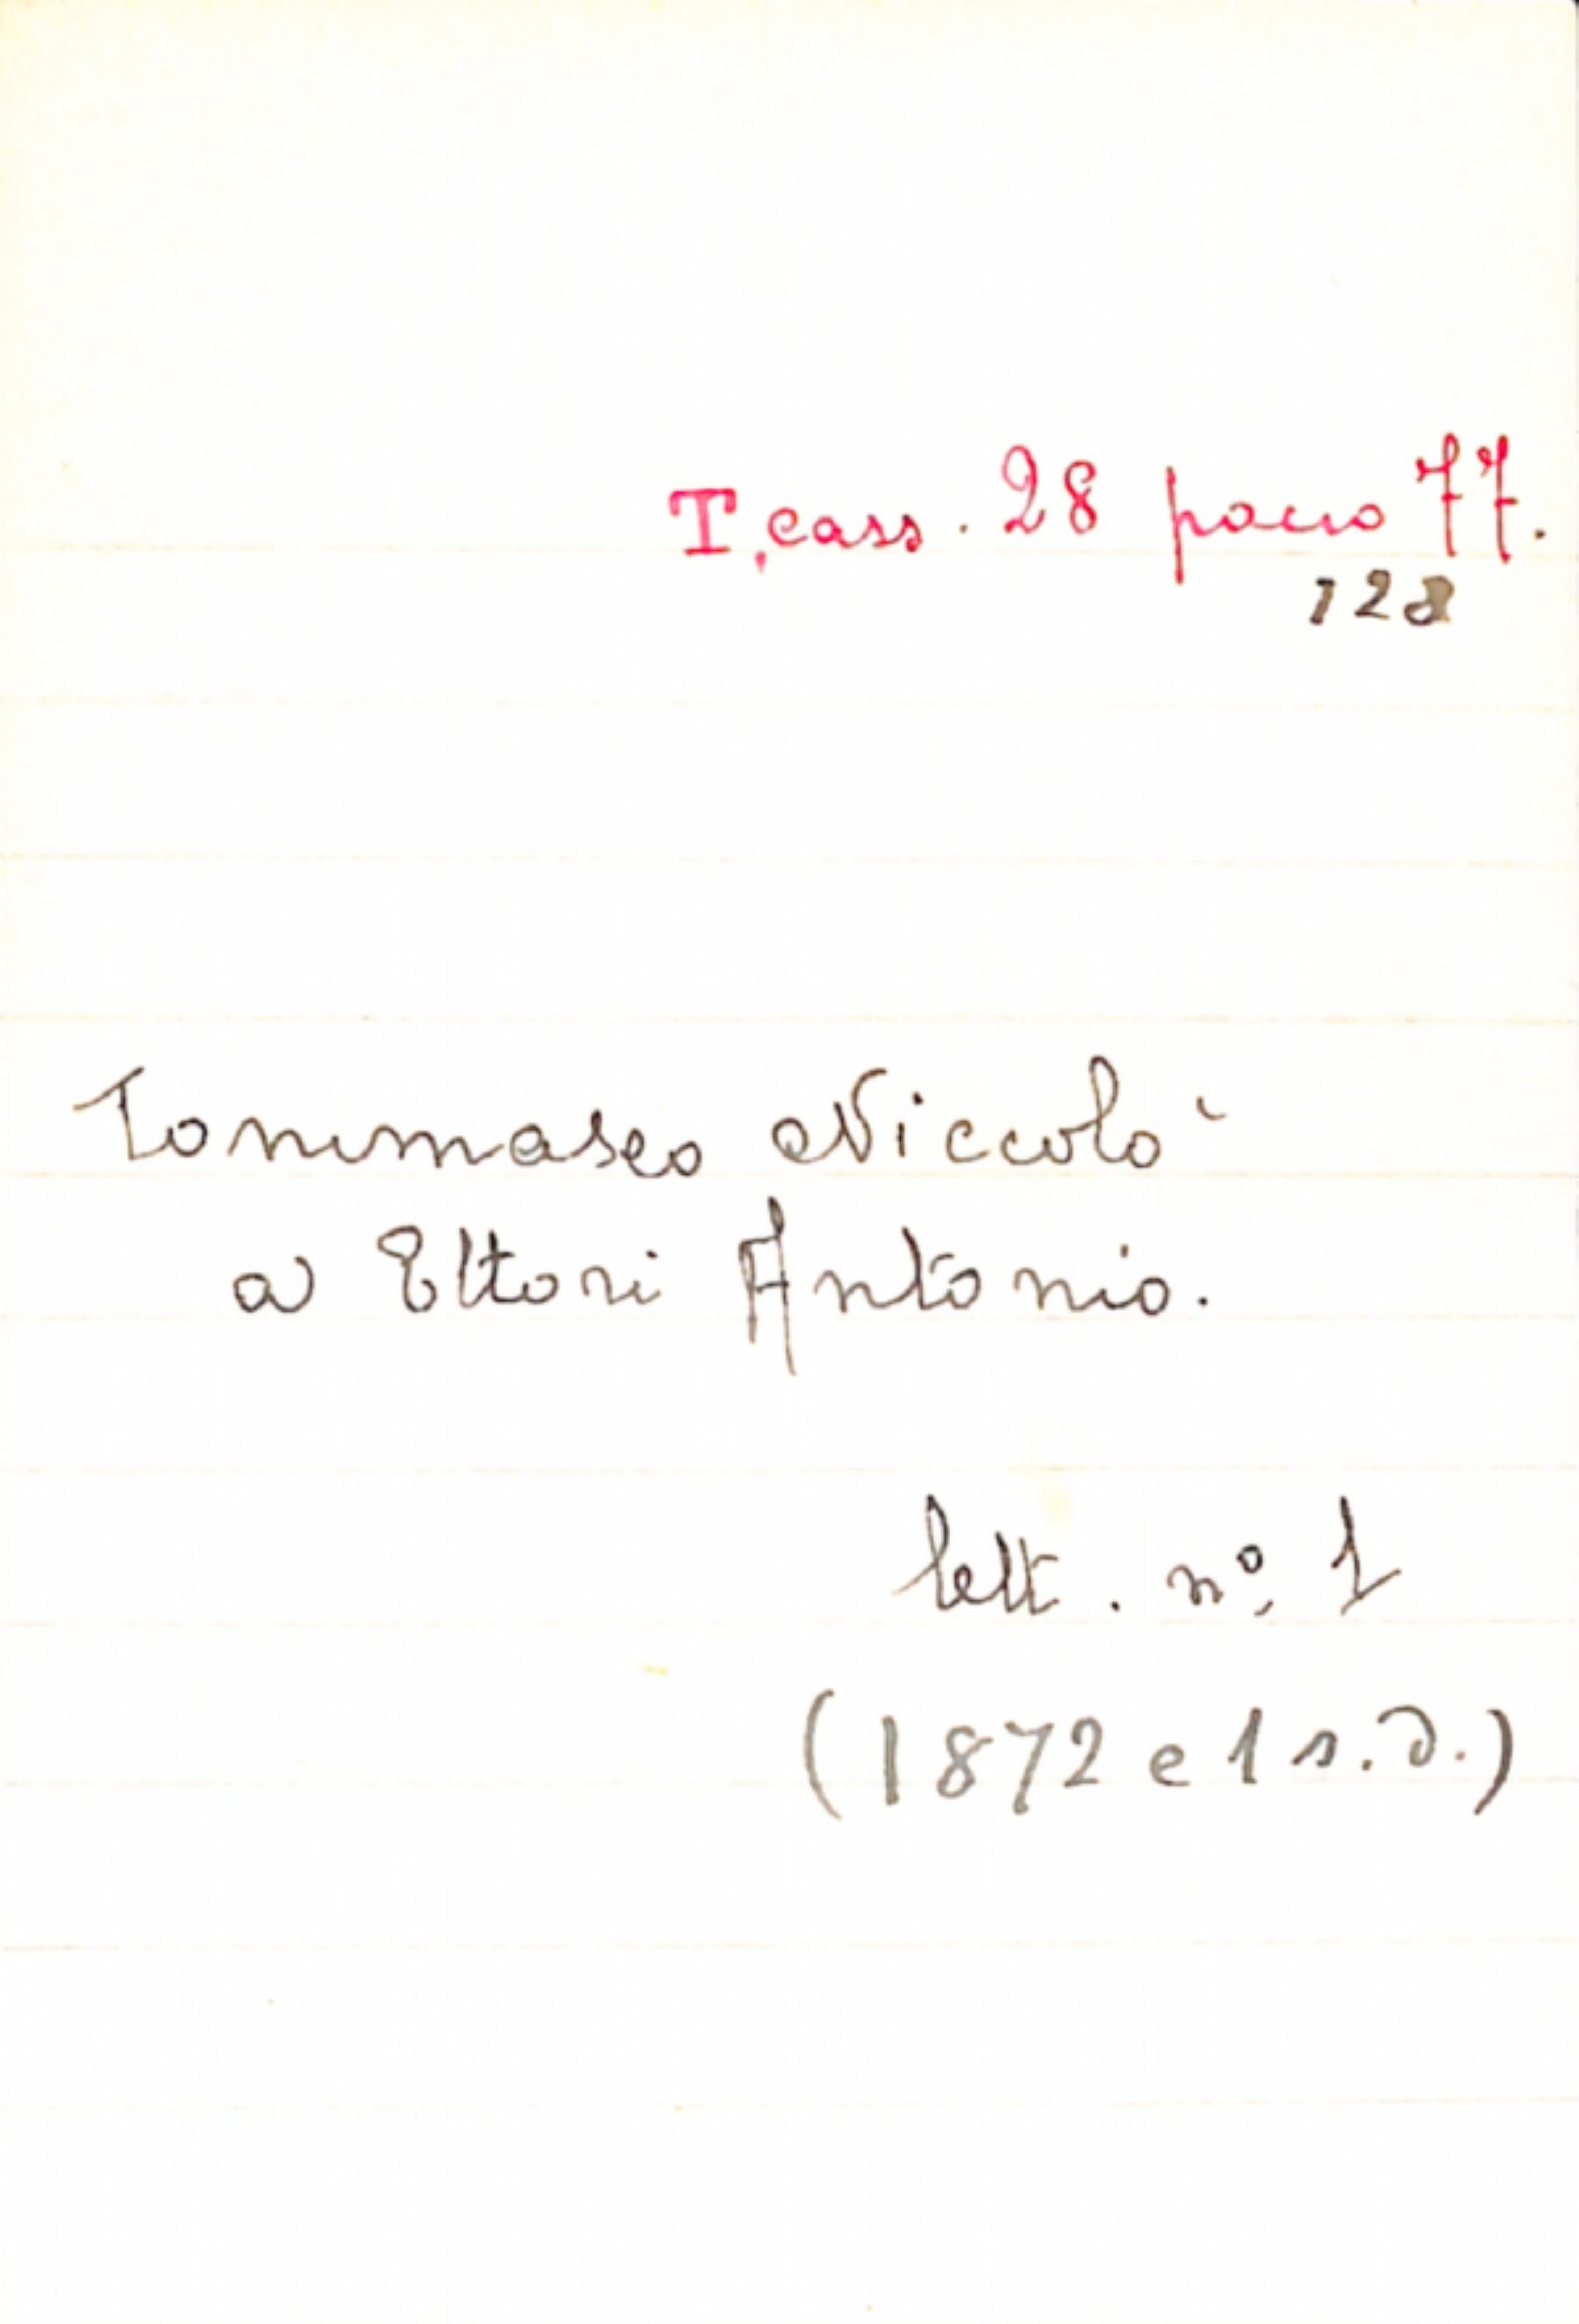 T. cass. 28 pacco 77.
128
Tommaseo Niccolò
a Ettori Antonio.
lett. nº. 1
(1872 e 1 s.d.)